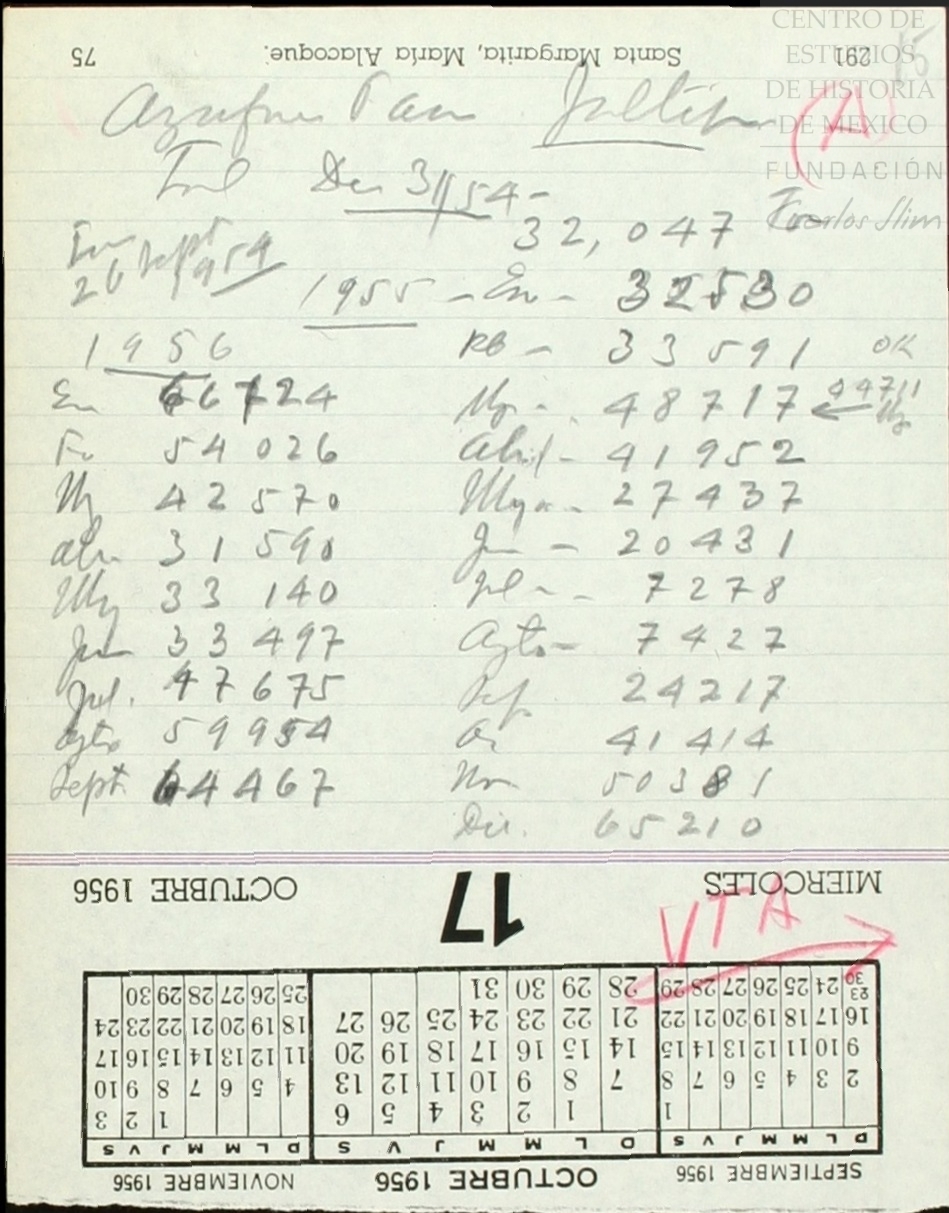 75 Santa Margarita, María Alacoque. 291
15
CENTRO DE
ESTUDIOS
DE HISTORIA
DE MEXICO
FUNDACIÓN
Carlos Slim
(A)
Azufre Pan Jáltipan
Dic 31/54-
32,047
26 Sept 1954
1955 - En - 32530
1956 FB - 33591 OK
En 66724 Mz - 48717 ← 44711 Mz
Fe 54026 Abril - 41952
Mz 42570 Mayo - 27437
Abr 31590 Jun - 20431
My 33140 Jul - 7278
Jun 33497 Agto - 7427
Jul. 47675 Sep 24217
Agto 59954 Oc 41414
Sept 64467 Nov 50381
Dic. 65210
MIERCOLES 17 OCTUBRE 1956
VTA
SEPTIEMBRE 1956
D L M M J V S
1
2 3 4 5 6 7 8
9 10 11 12 13 14 15
16 17 18 19 20 21 22
23 30 24 25 26 27 28 29
OCTUBRE 1956
D L M M J V S
1 2 3 4 5 6
7 8 9 10 11 12 13
14 15 16 17 18 19 20
21 22 23 24 25 26 27
28 29 30 31
NOVIEMBRE 1956
D L M M J V S
1 2 3
4 5 6 7 8 9 10
11 12 13 14 15 16 17
18 19 20 21 22 23 24
25 26 27 28 29 30